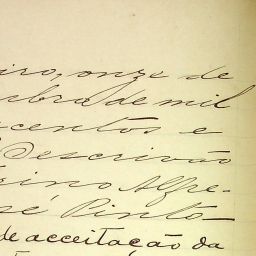 iro, onze de
bro de mil
centos e
Descrivão
ino Alfre-
sé Pinto
de acceitação da